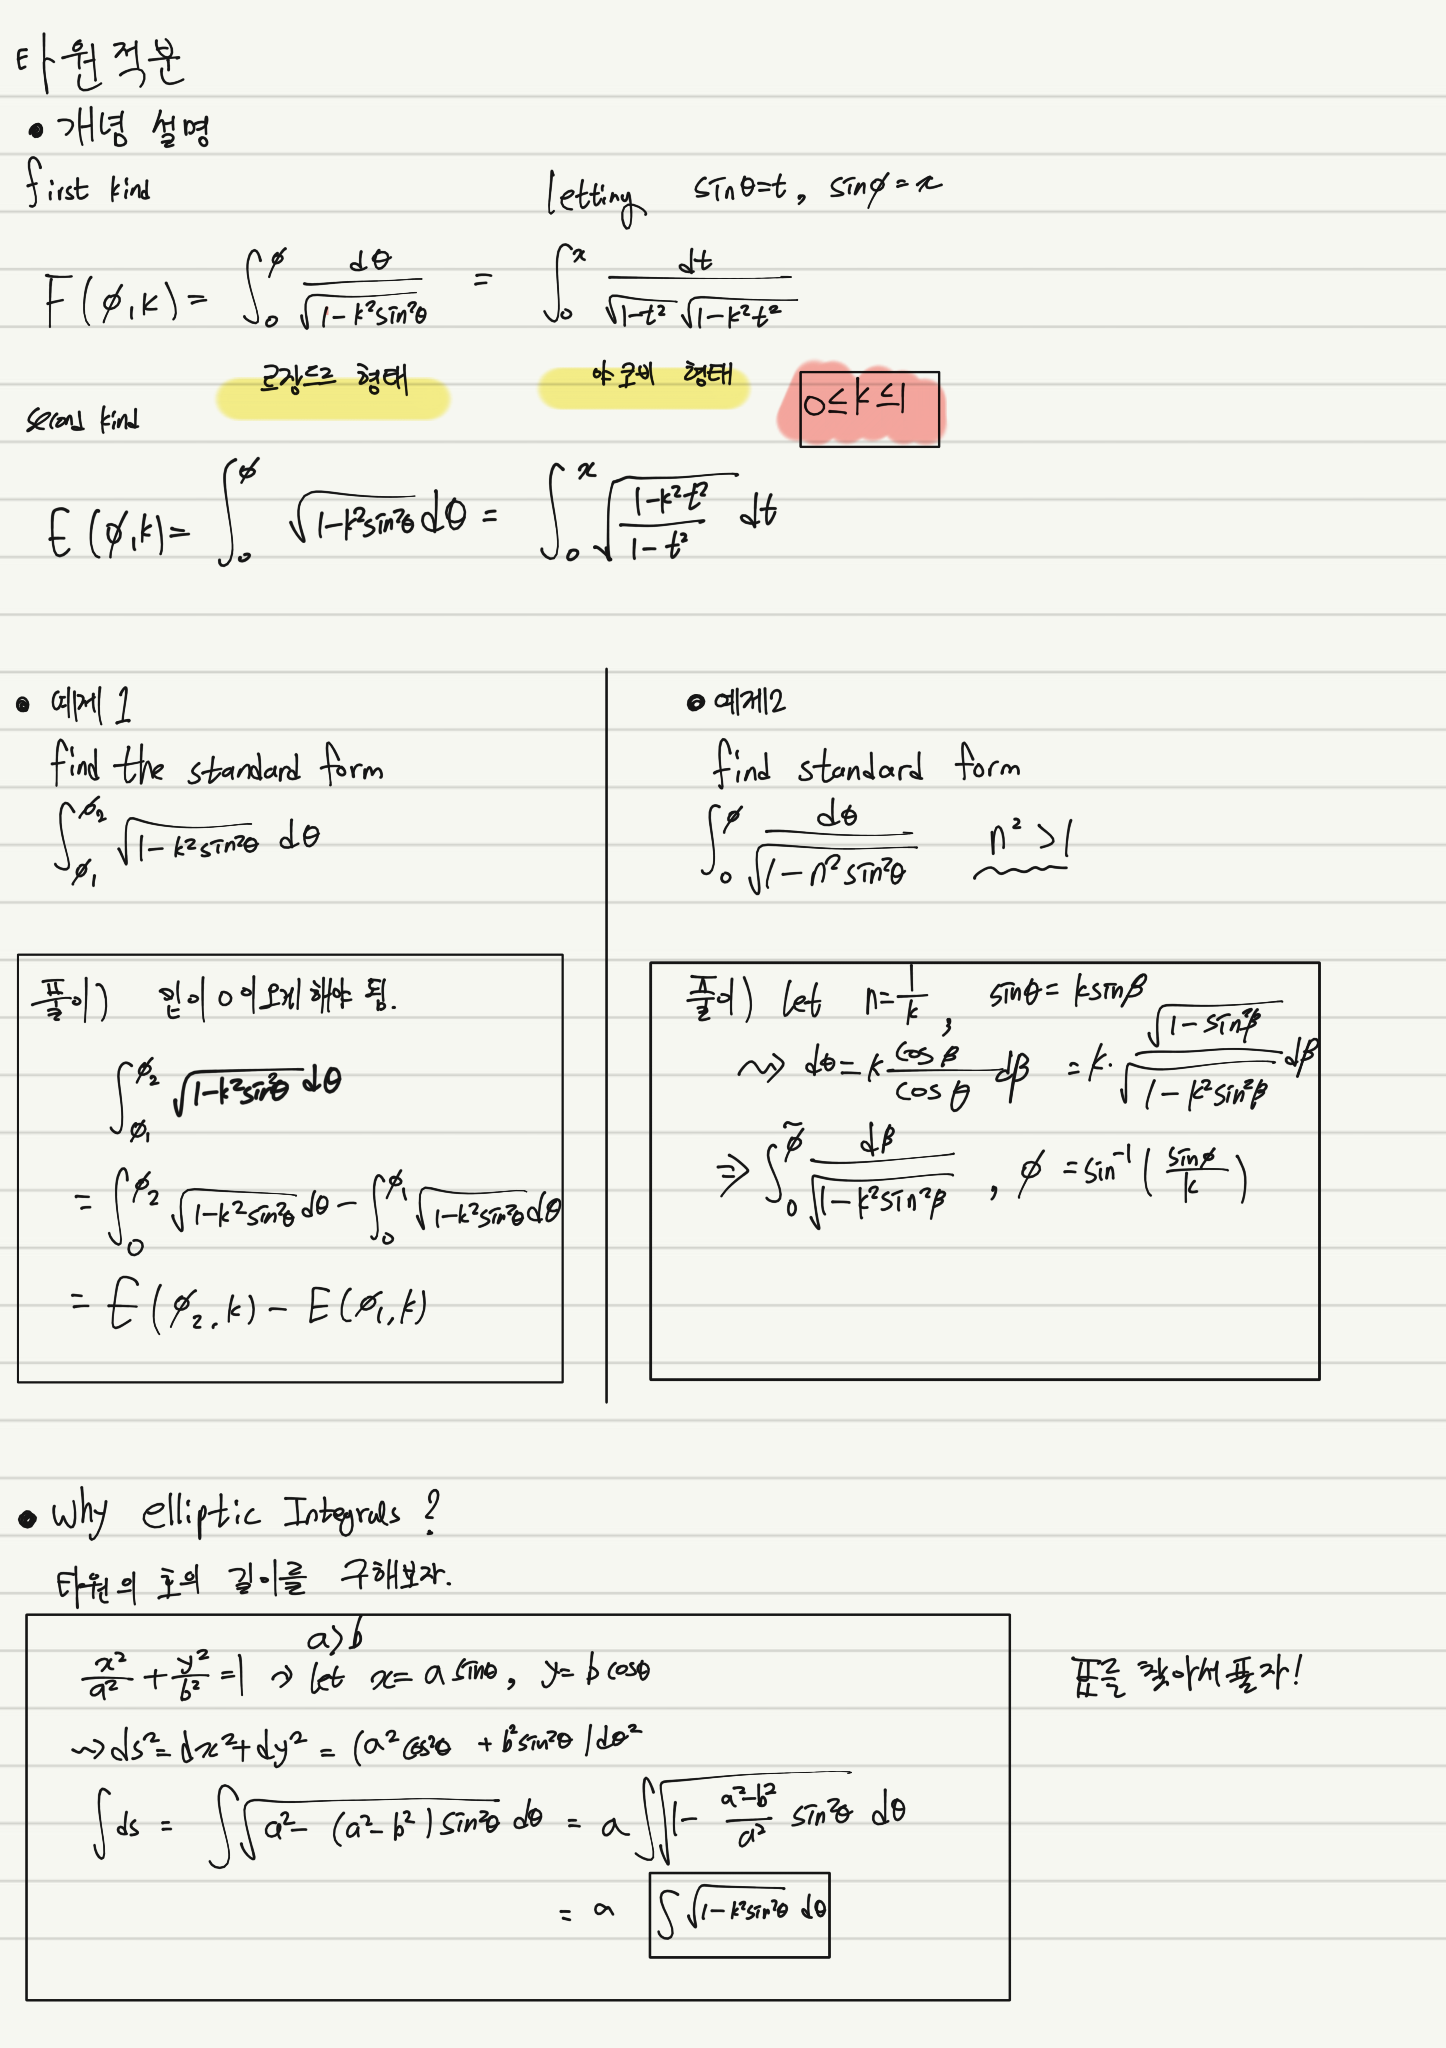 타원적분
• 개념 설명
first kind
letting sinθ=t, sinφ=x
F(φ,k) = ∫₀^φ dθ/√(1-k²sin²θ) = ∫₀^x dt/(√(1-t²) √(1-k²t²))
르장드르 형태 야코비 형태 0≤k≤1
second kind
E(φ,k)= ∫₀^φ √(1-k²sin²θ) dθ = ∫₀^x √((1-k²t²)/(1-t²)) dt
• 예제 1
find the standard form
∫_φ₁^φ₂ √(1-k²sin²θ) dθ
풀이) 밑이 0 이오게 해야 됨.
∫_φ₁^φ₂ √(1-k²sin²θ) dθ
= ∫₀^φ₂ √(1-k²sin²θ) dθ - ∫₀^φ₁ √(1-k²sin²θ) dθ
= E(φ₂,k) - E(φ₁,k)
• 예제2
find standard form
∫₀^φ dθ/√(1-n²sin²θ) n²>1
풀이) let n=1/k, sinθ= ksinβ
⇝ dθ=k cosβ/cosθ dβ =k·√(1-sin²β)/√(1-k²sin²β) dβ
⇒ ∫₀^φ̃ dβ/√(1-k²sin²β), φ =sin⁻¹(sinφ/k)
• Why elliptic Integrals?
타원의 호의 길이를 구해보자.
a>b
x²/a² + y²/b² =1 ⇝ let x= a sinθ, y= b cosθ
⇝ ds²= dx²+dy² = (a²cos²θ + b²sin²θ)dθ²
∫ds = ∫√(a²-(a²-b²)sin²θ) dθ = a∫√(1-(a²-b²)/a² sin²θ) dθ
= a ∫√(1-k²sin²θ) dθ
표를 찾아서 풀자!